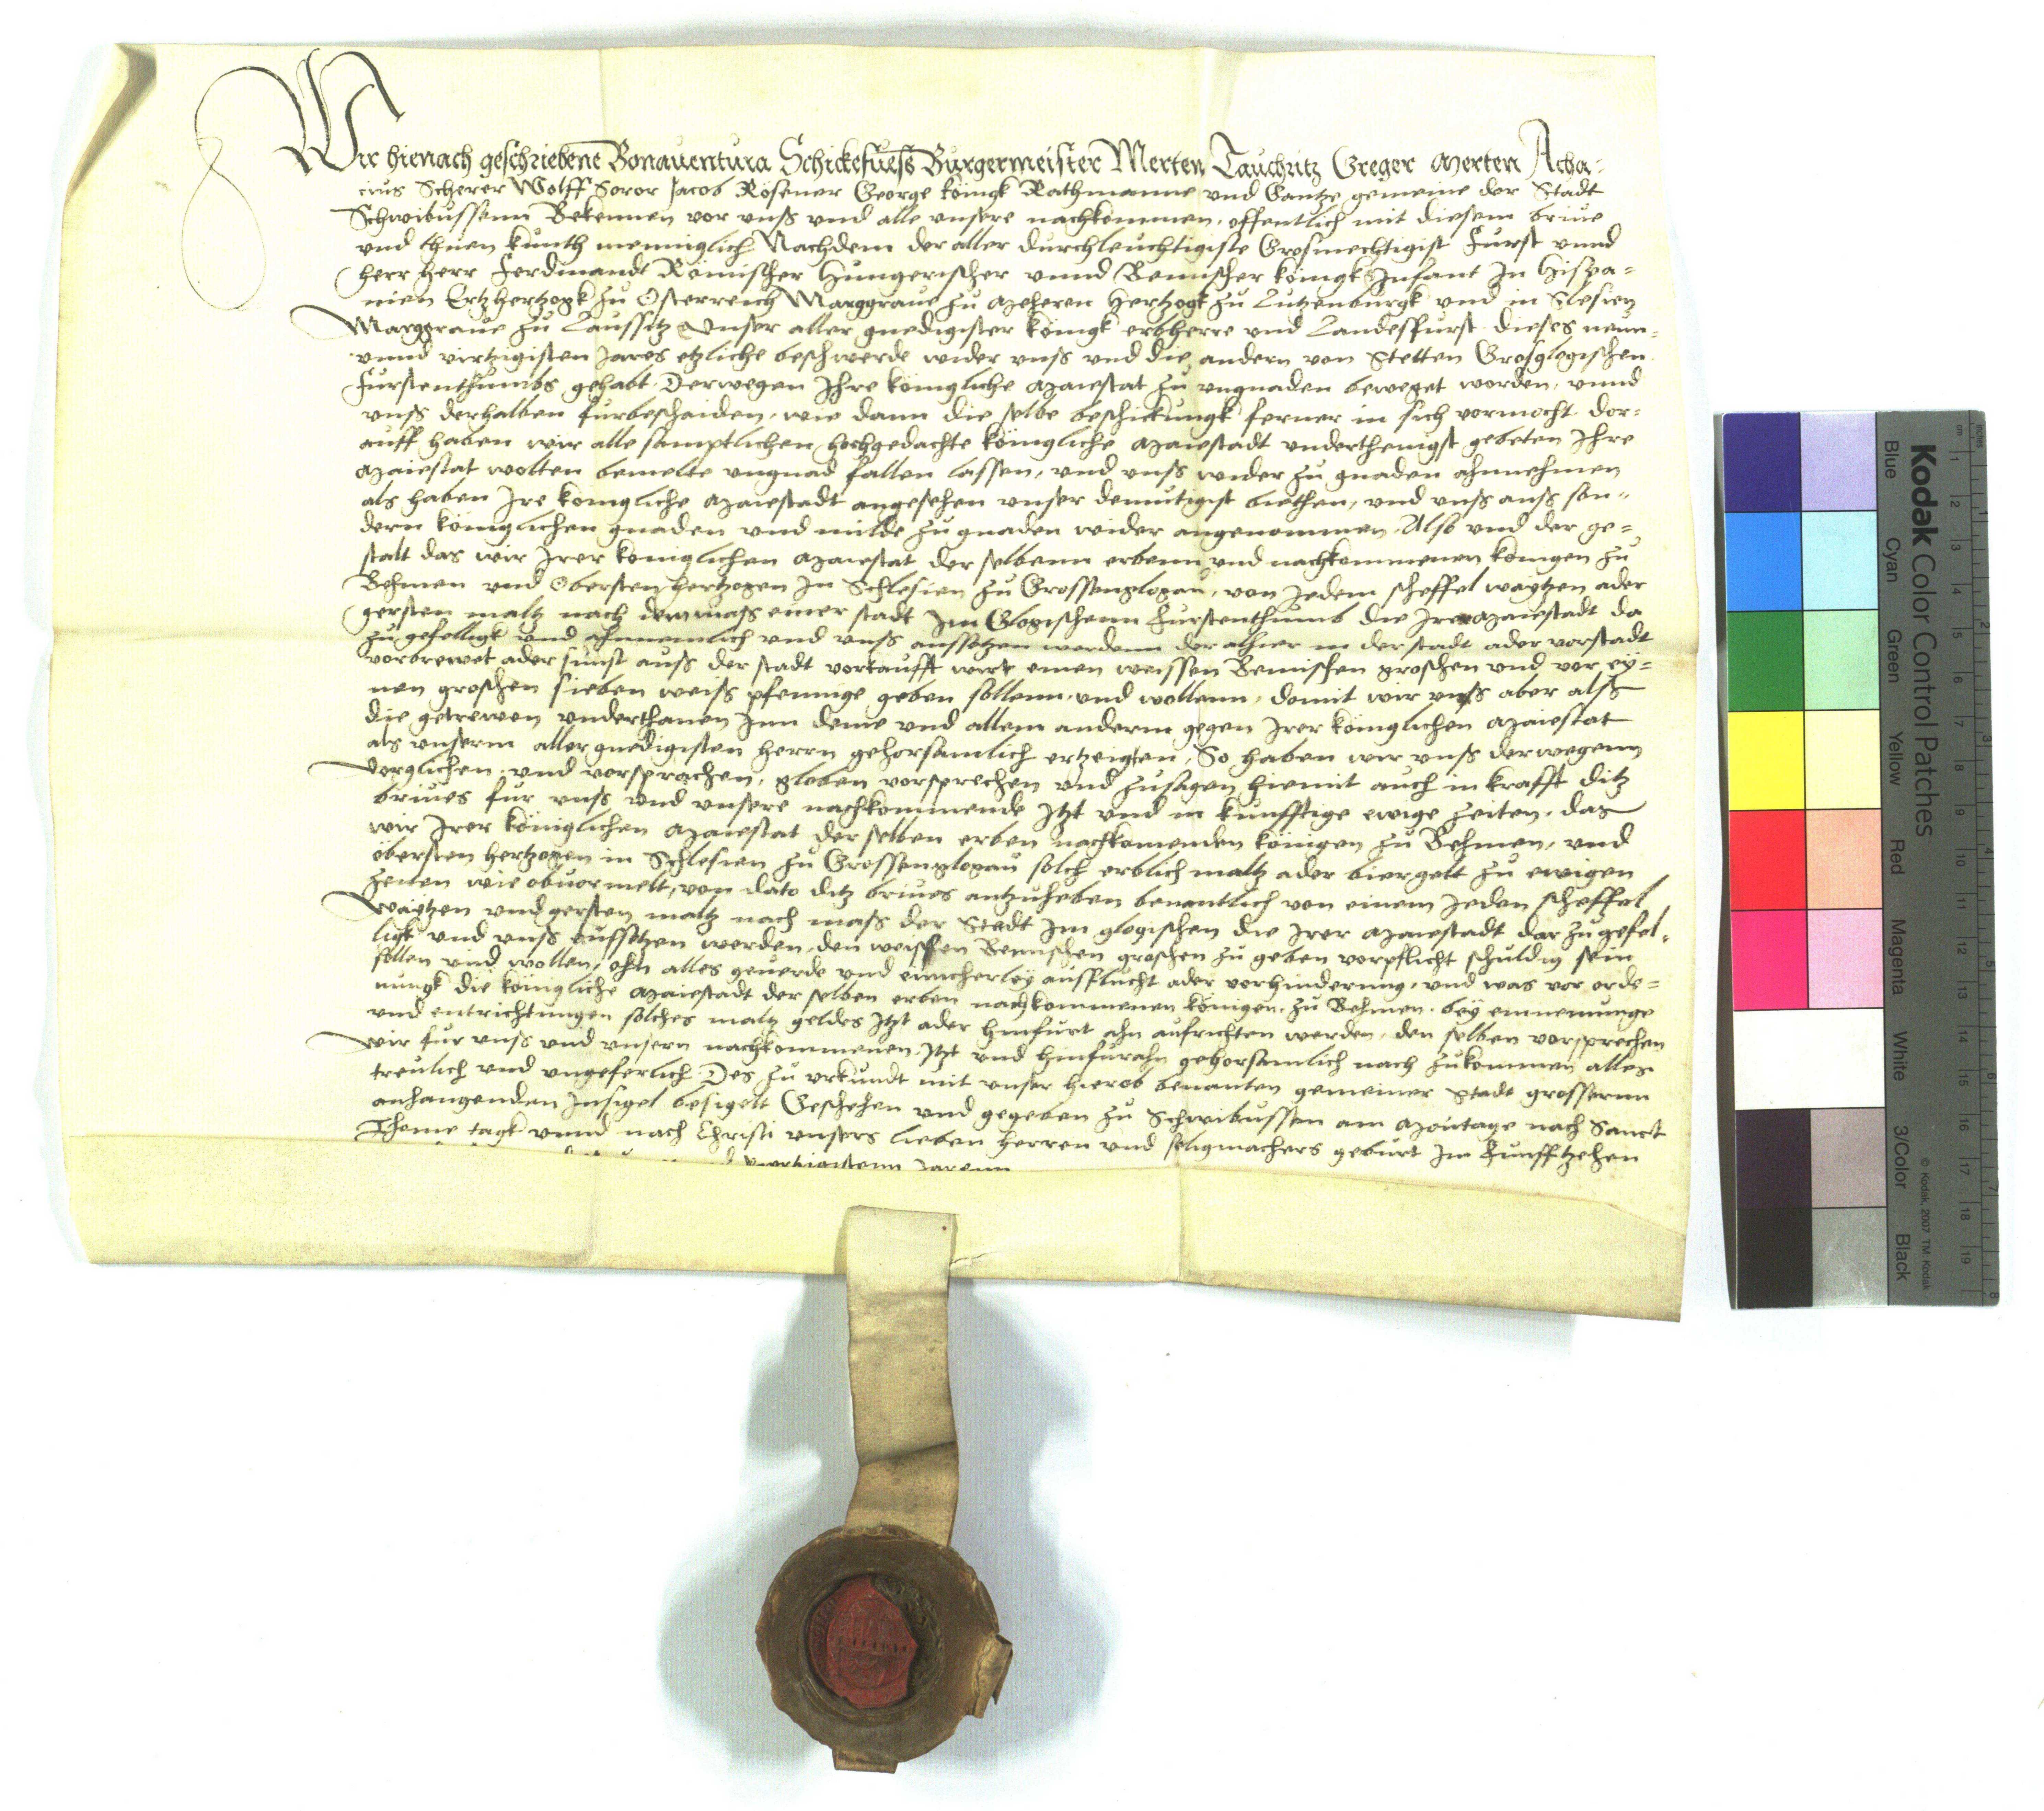 Wir hienach geschriebene Bonaventura Schickefuess Burgermeister Merten Tauchritz Greger Merten Acha-
cius Scherer Wolff Soror Jacob Rösener George köingk Rathmanne und Gantze gemeine der Stadt
Schwibussenn Bekennen vor unß und alle unsere nachkommen, offentlich mit diesem brive
und thuen kunth menniglich Nachdem der aller durchleuchtigiste Grosmechtigist Furst unnd
herr herr Ferdinandt Römischer Hungerischer unnd Bemischer köingk Infant In Hispa-
nien Ertzhertzogk zu Osterreich Marggrave zu Meheren Hertzogk zu Lutzenburgk und in Slesien
Marggrave zu Laussitz Unser aller gnedigister köingk erbherre und Landesfurst dieses neun-
unnd virtzigisten Jares etzliche beschwerde wider unß und die andern von Stetten Grosglogischen
Furstenthumbs gehabt. Derwegen Ihre königliche Maiestat zu ungnaden beweget worden, unnd
unß derhalben furbeschaiden, wie dann die selbe beschickungk ferner in sich vormocht. dor-
auff haben wir alle samptlichen hochgedachte königliche Maiestadt underthenigst gebeten Ihre
Maiestat wolten bemelte ungnad fallen lassen, und unß wider zu gnaden ahnnehmen
als haben Ire königliche Maiestadt angesehen unser demutigist biethen, und unß auß son-
dern königlichen gnaden und milde zu gnaden wider angenommen. Also und der ge-
stalt das wir Irer königlichen Maiestat der selbenn erbenn und nachkommenen königen zu
Behmen und Obersten hertzogen In Schlesien zu Grossenglogau, von Jedem scheffel waytzen ader
gersten maltz nach dem maß einer stadt Im Glogischenn Furstenthumb die Irer Maiestadt da
zu gefelligk und ahnnemlich und unß aussetzen werdenn der alhier in der stadt ader vorstadt
vorbrewet ader sunst auß der stadt vorkaufft wirt einen weissen Bemischen groschen und vor ey-
nen groschen sieben weiß pfennige geben sollenn, und wollenn, domit wir unß aber alß
die getrewen underthanen Inn deme und allem anderm gegen Irer königlichen Maiestat
als unserm aller gnedigisten herrn gehorsamlich ertzeigten, So haben wir unß derwegenn
vorglichen und vorsprachen, globen vorsprechen und zusagen hiemit auch in krafft ditz
brives fur unß und unsere nachkommende Itzt und in kunfftige ewige zeiten, das
wir Irer königlichen Maiestat der selben erben nachkomenden königen zu Behmen, und
öbersten hertzogen in Schlesien zu Grossenglogau solch erblich maltz ader biergelt zu ewigen
zeiten wie obvormelt, von dato ditz brives antzuheben benantlich von einem Jeden scheffel
waytzen und gersten maltz nach maß der Stadt Im glogischen die Irer Maiestadt dar zu gefel-
ligk und unß auffsetzen werden, den weissen Bemischen groschen zu geben vorpflicht schuldig sein
sollen und wollen, ohn alles geverde und eincherley außflucht ader vorhinderung, und was vor orde-
nungk die königliche Maiestadt der selben erben nachkommenen königen zu Behmen, bey einnemunge
und entrichtungen solches maltz geldes Itzt ader hinfurt ahn aufrichten werden, den selben vorsprechen
wir fur unß und unsern nachkommenen, Itzt und hinfurahn gehorsamlich nach zukommen alles
treulich und ungeferlich. Des zu urkundt mit unser hierob benanten gemeiner Stadt grosserm
anhangenden Insigel besigelt Geschehen und gegeben zu Schwibussen am Montage nach Sanct
Thome tagk unnd nach Christi unsers lieben herren und seligmachers geburt Im Funfftzehen
viertzigistenn Jarenn
Kodak Color Control Patches
Blue Cyan Green Yellow Red Magenta White 3/Color Black
© Kodak, 2007 TM: Kodak
cm 1 2 3 4 5 6 7 8 9 10 11 12 13 14 15 16 17 18 19
inches 1 2 3 4 5 6 7 8